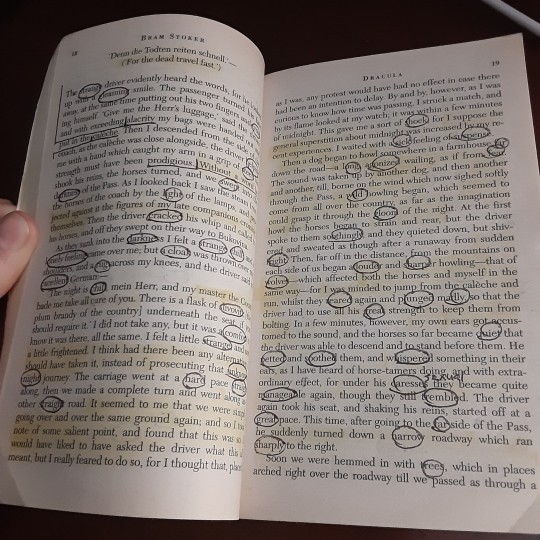 18
BRAM STOKER
'Denn die Todten reiten schnell.'—
('For the dead travel fast.')
The strange driver evidently heard the words, for he
up with a gleaming smile. The passenger turned
away, at the same time putting out his two fingers and
ing himself. 'Give me the Herr's luggage,' said the
and with exceeding alacrity my bags were handed
put in the calèche. Then I descended from the side
coach, as the calèche was close alongside, the driver
me with a hand which caught my arm in a grip of
strength must have been prodigious. Without a
shook his reins, the horses turned, and we swept
darkness of the Pass. As I looked back I saw the steam
the horses of the coach by the light of the lamps, and
jected against it the figures of my late companions
themselves. Then the driver cracked his whip and
his horses, and off they swept on their way to Bukovina
As they sank into the darkness I felt a strange chill
lonely feeling came over me; but a cloak was thrown over
shoulders, and a rug across my knees, and the driver said
excellent German—
'The night is chill, mein Herr, and my master the Count
bade me take all care of you. There is a flask of slivovitz
plum brandy of the country] underneath the seat, if
should require it.' I did not take any, but it was a comfort
know it was there, all the same. I felt a little strange and
a little frightened. I think had there been any alternative
should have taken it, instead of prosecuting that
night journey. The carriage went at a hard pace
along, then we made a complete turn and went along
other straight road. It seemed to me that we were
going over and over the same ground again; and so I
note of some salient point, and found that this was so.
would have liked to have asked the driver what this
meant, but I really feared to do so, for I thought that, placed
DRACULA
19
as I was, any protest would have had no effect in case there
had been an intention to delay. By and by, however, as I was
curious to know how time was passing, I struck a match, and
by its flame looked at my watch; it was within a few minutes
of midnight. This gave me a sort of shock, for I suppose the
general superstition about midnight was increased by my re-
cent experiences. I waited with a sick feeling of suspense.
Then a dog began to howl somewhere in a farmhouse far
down the road—a long, agonized wailing, as if from fear.
The sound was taken up by another dog, and then another
and another, till, borne on the wind which now sighed softly
through the Pass, a wild howling began, which seemed to
come from all over the country, as far as the imagination
could grasp it through the gloom of the night. At the first
howl the horses began to strain and rear, but the driver
spoke to them soothingly, and they quieted down, but shiv-
ered and sweated as though after a runaway from sudden
fright. Then, far off in the distance, from the mountains on
each side of us began a louder and a sharper howling—that of
wolves—which affected both the horses and myself in the
same way—for I was minded to jump from the calèche and
run, whilst they reared again and plunged madly, so that the
driver had to use all his great strength to keep them from
bolting. In a few minutes, however, my own ears got accus-
tomed to the sound, and the horses so far became quiet that
the driver was able to descend and to stand before them. He
petted and soothed them, and whispered something in their
ears, as I have heard of horse-tamers doing, and with extra-
ordinary effect, for under his caresses they became quite
manageable again, though they still trembled. The driver
again took his seat, and shaking his reins, started off at a
great pace. This time, after going to the far side of the Pass,
he suddenly turned down a narrow roadway which ran
sharply to the right.
Soon we were hemmed in with trees, which in places
arched right over the roadway till we passed as through a